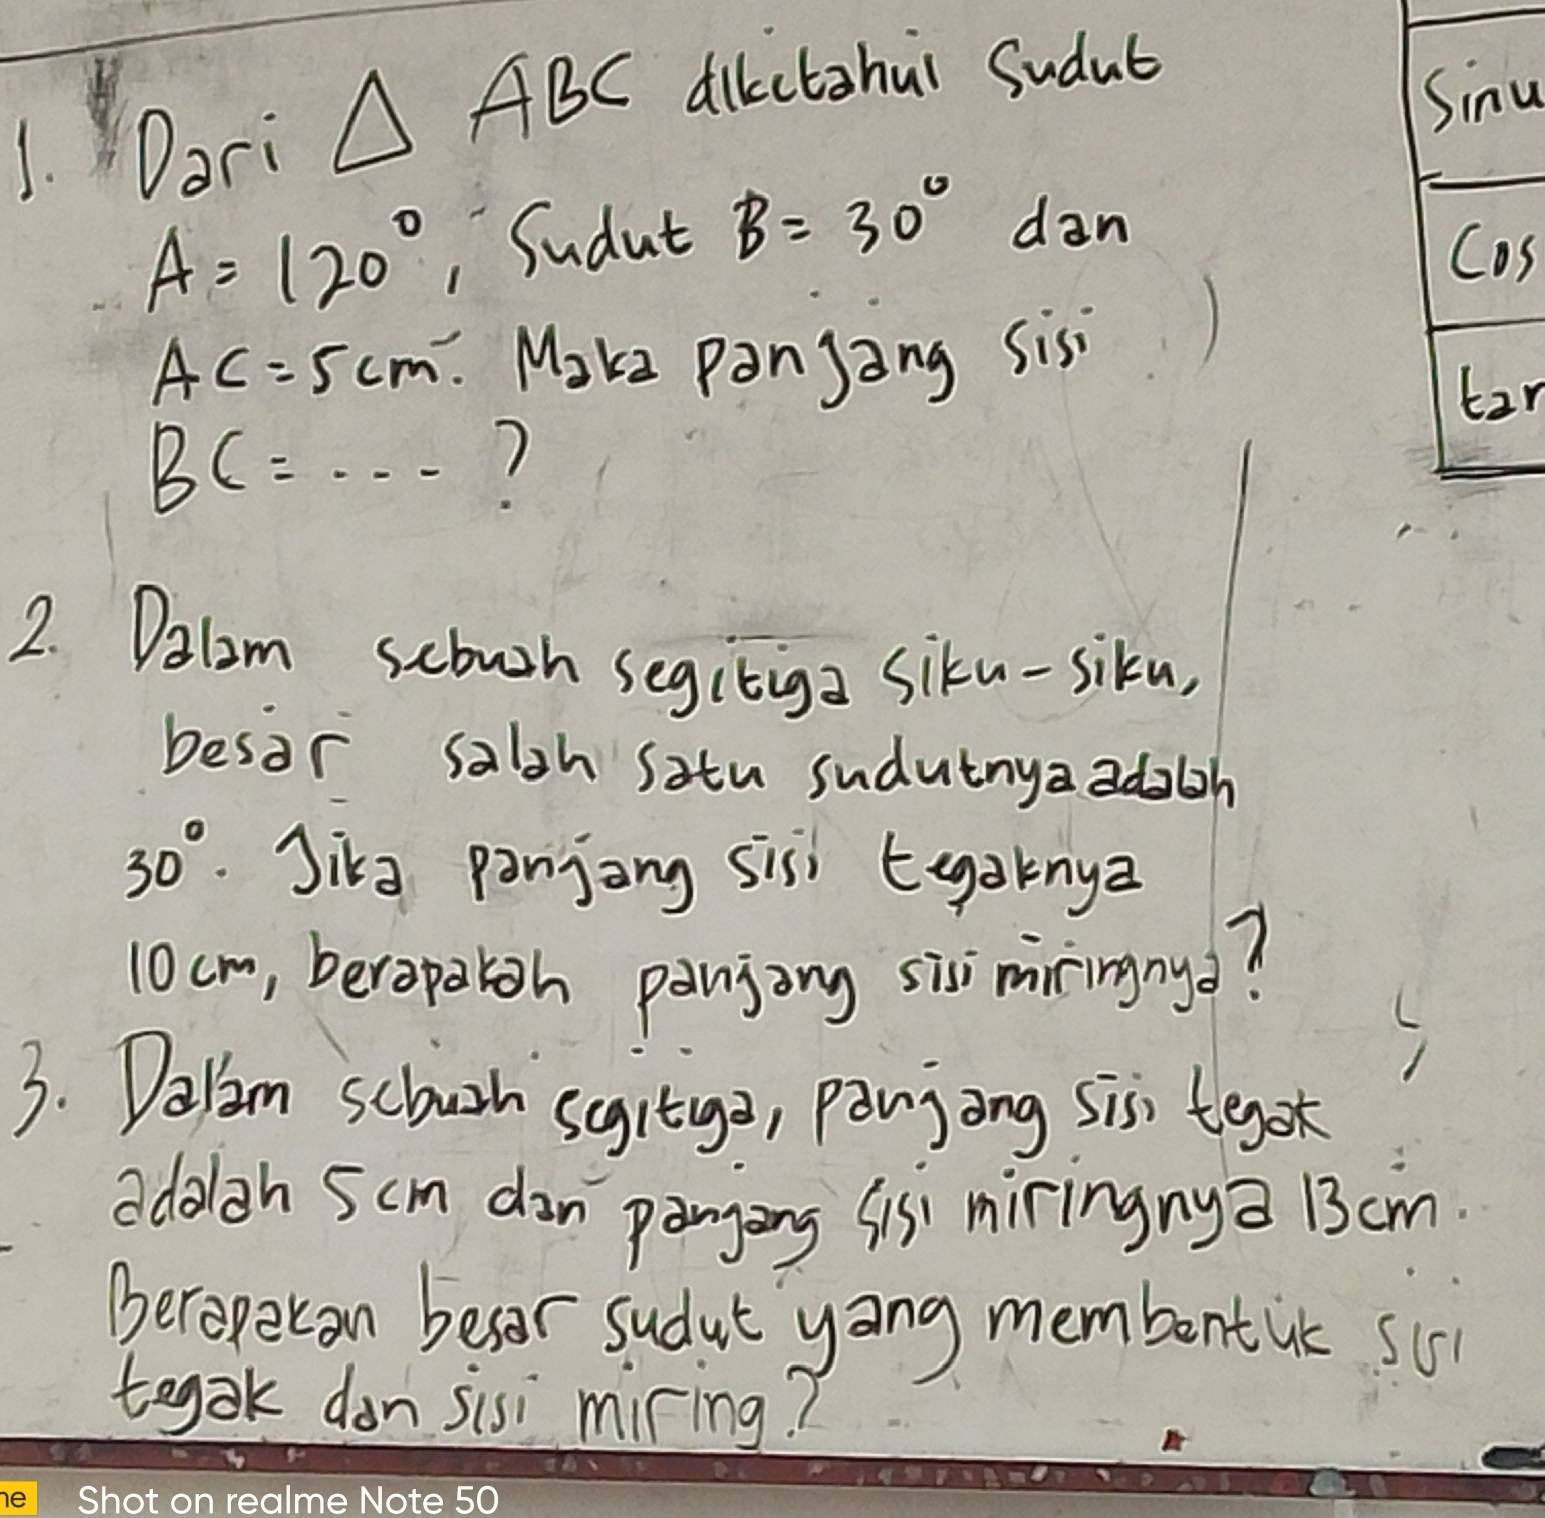 1. Dari △ ABC diketahui Sudut
A = 120°, Sudut B = 30° dan
AC = 5 cm. Maka panjang sisi
BC = .... ?
2. Dalam sebuah segitiga siku-siku,
besar salah satu sudutnya adalah
30°. Jika panjang sisi tegaknya
10 cm, berapakah panjang sisi miringnya?
3. Dalam sebuah segitiga, panjang sisi tegak
adalah 5 cm dan panjang sisi miringnya 13 cm.
Berapakan besar sudut yang membentuk sisi
tegak dan sisi miring?
Sinu
Cos
tan
Shot on realme Note 50